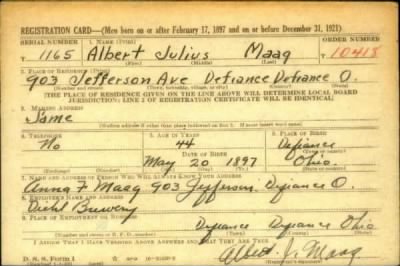 REGISTRATION CARD—(Men born on or after February 17, 1897 and on or before December 31, 1921)
SERIAL NUMBER 1. NAME (Print) ORDER NUMBER
T 1165 Albert Julius Maag T 10418
(First) (Middle) (Last)
2. PLACE OF RESIDENCE (Print)
903 Jefferson Ave Defiance Defiance O.
(Number and street) (Town, township, village, or city) (County) (State)
[THE PLACE OF RESIDENCE GIVEN ON THE LINE ABOVE WILL DETERMINE LOCAL BOARD
JURISDICTION; LINE 2 OF REGISTRATION CERTIFICATE WILL BE IDENTICAL]
3. MAILING ADDRESS
Same
[Mailing address if other than place indicated on line 2. If same insert word same]
4. TELEPHONE 5. AGE IN YEARS 6. PLACE OF BIRTH
No 44 Defiance
DATE OF BIRTH (Town or county)
May 20 1897 Ohio.
(Mo.) (Day) (Yr.) (State or country)
7. NAME AND ADDRESS OF PERSON WHO WILL ALWAYS KNOW YOUR ADDRESS
Anna F Maag 903 Jefferson Defiance O.
8. EMPLOYER'S NAME AND ADDRESS
Diehl Brewery
9. PLACE OF EMPLOYMENT OR BUSINESS
Defiance Defiance Ohio
(Number and street or R. F. D. number) (Town) (County) (State)
I AFFIRM THAT I HAVE VERIFIED ABOVE ANSWERS AND THAT THEY ARE TRUE.
D. S. S. Form 1 Albert J. Maag